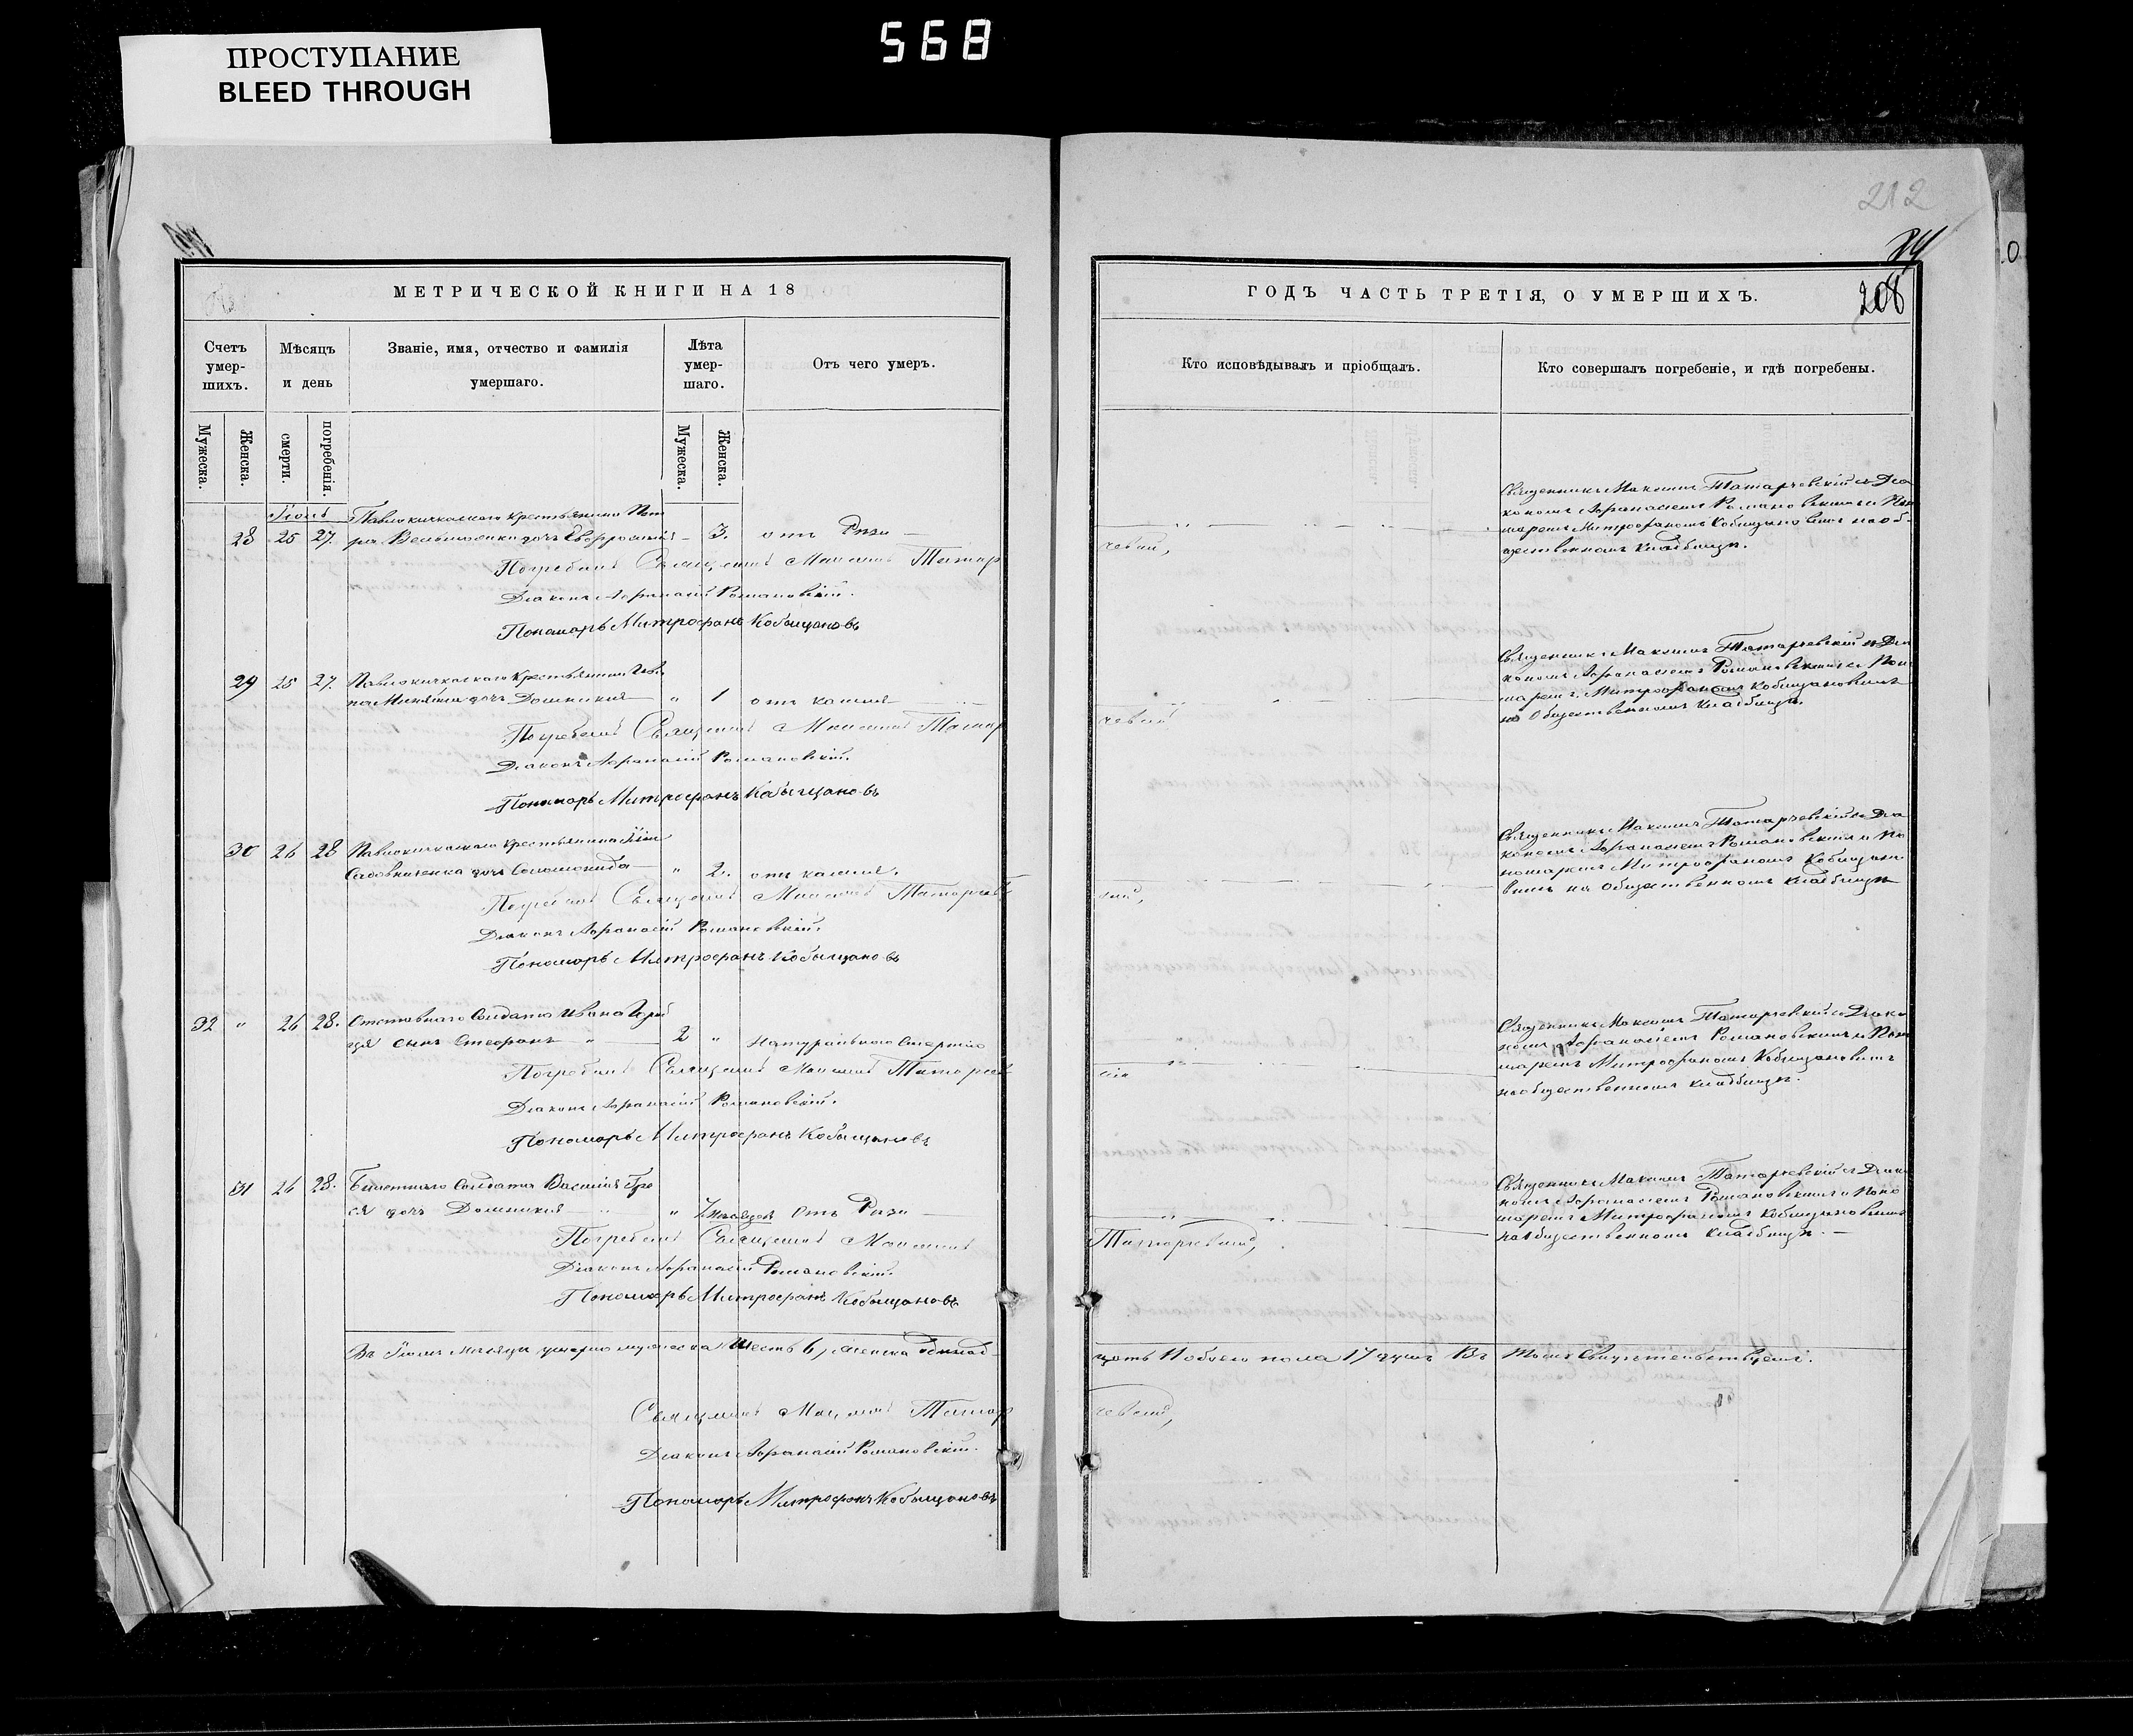 568
ПРОСТУПАНИЕ
BLEED THROUGH
212
84
208
МЕТРИЧЕСКОЙ КНИГИ НА 18
ГОДЪ ЧАСТЬ ТРЕТІЯ, О УМЕРШИХЪ.
Счетъ умер-шихъ.
Мѣсяцъ и день
Званіе, имя, отчество и фамилія умершаго.
Лѣта умер-шаго.
Отъ чего умеръ.
Кто исповѣдывалъ и пріобщалъ.
Кто совершалъ погребеніе, и гдѣ погребены.
Мужеска.
Женска.
смерти.
погребенія.
Мужеска.
Женска.
Павлокичкаскаго крестьянина Пет
28 25 27. ра дочь Евфросинія 3. отъ
Погребалъ Священникъ Максимъ Татар
чевскій,
Діаконъ Афанасій Романовскій.
Пономарь Митрофанъ Кобыщановъ
Священникъ Максимъ Татарчевскій съ Діа
кономъ Афанасіемъ Романовскимъ и Поно
маремъ Митрофаномъ Кобыщановымъ на об-
щественномъ кладбищѣ.
29 25 27. Павлокичкаскаго крестьянина
дочь Домникия " 1 отъ кашля
Погребалъ Священникъ Максимъ Татар
чевскій
Діаконъ Афанасій Романовскій.
Пономарь Митрофанъ Кобыщановъ
Священникъ Максимъ Татарчевскій съ Діа
кономъ Афанасіемъ Романовскимъ и Поно
маремъ Митрофаномъ Кобыщановымъ
на Общественномъ кладбищѣ.
30 26 28 Павлокичкаскаго крестьянина
Садовниченка дочь Соломонида " 2. отъ кашля.
Погребалъ Священникъ Максимъ Татарчев
скій,
Діаконъ Афанасій Романовскій.
Пономарь Митрофанъ Кобыщановъ
Священникъ Максимъ Татарчевскій съ Діа
кономъ Афанасіемъ Романовскимъ и По
номаремъ Митрофаномъ Кобыщано
вымъ на Общественномъ кладбищѣ
32 " 26 28. Отставнаго Солдата Ивана
сынъ Стефанъ " 2 " Натуральною смертію
Погребалъ Священникъ Максимъ Татарчев
скій
Діаконъ Афанасій Романовскій.
Пономарь Митрофанъ Кобыщановъ
Священникъ Максимъ Татарчевскій съ Діако
номъ Афанасіемъ Романовскимъ и Поно
маремъ Митрофаномъ Кобыщановымъ
на общественномъ кладбищѣ.
31 26 28. Билетнаго Солдата Василія
дочь Домникия " " 7 мѣсяцовъ Отъ
Погребалъ Священникъ Максимъ
Татарчевскій,
Діаконъ Афанасій Романовскій.
Пономарь Митрофанъ Кобыщановъ
Священникъ Максимъ Татарчевскій съ Діако
номъ Афанасіемъ Романовскимъ и Поно
маремъ Митрофаномъ Кобыщановымъ
на Общественномъ кладбищѣ.
Въ Іюлѣ мѣсяцѣ умерло мужеска шесть 6, женска одинад
цать 11 обоего пола 17 душъ Въ томъ Свидѣтельствуемъ.
Священникъ Максимъ Татар
чевскій,
Діаконъ Афанасій Романовскій.
Пономарь Митрофанъ Кобыщановъ